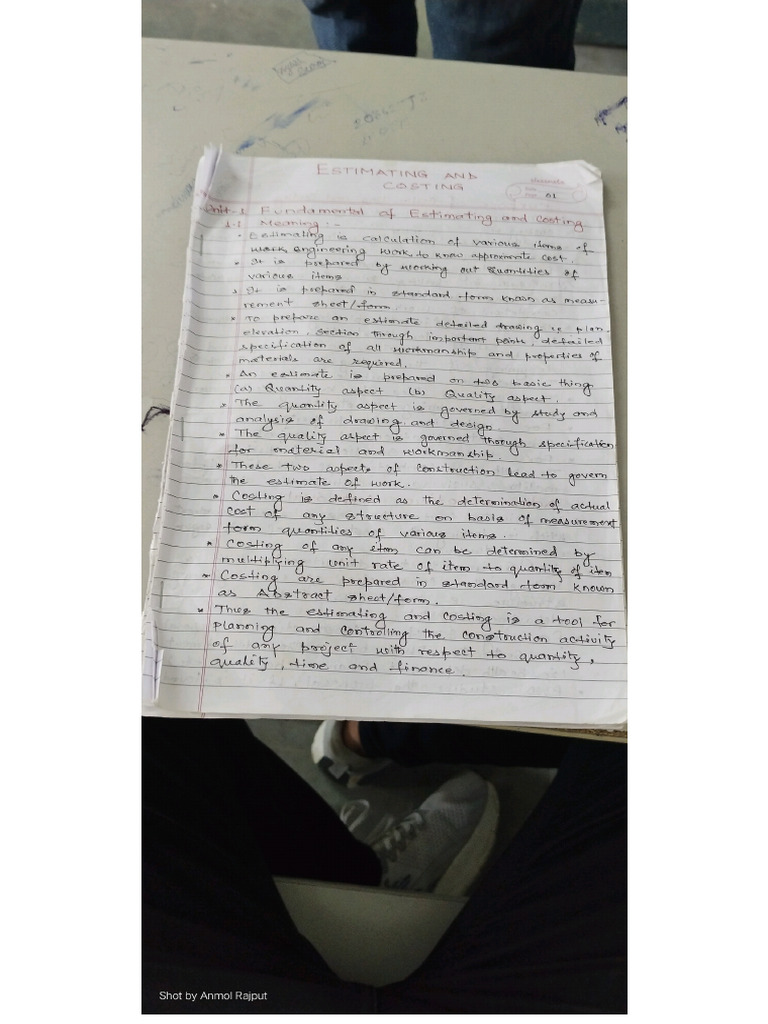 ESTIMATING AND
COSTING
01
Unit-1 Fundamental of Estimating and Costing
1.1 Meaning :-
* Estimating is calculation of various items of
engineering work to know approximate cost.
* It is prepared by working out quantities of
various items
* It is prepared in standard form known as measu-
rement sheet/form
* To prepare an estimate detailed drawing ie plan,
elevation, section through important point, detailed
specification of all workmanship and properties of
materials are required.
* An estimate is prepared on two basic thing
(a) Quantity aspect (b) Quality aspect.
* The quantity aspect is governed by study and
analysis of drawing and design
* The quality aspect is governed through specification
for material and workmanship.
* These two aspects of construction lead to govern
the estimate of work.
* Costing is defined as the determination of actual
cost of any structure on basis of measurement
form quantities of various items.
* Costing of any item can be determined by
multiplying unit rate of item to quantity of item
* Costing are prepared in standard form known
as Abstract sheet/form.
* Thus the estimating and costing is a tool for
planning and controlling the construction activity
of any project with respect to quantity,
quality, time and finance.
Shot by Anmol Rajput